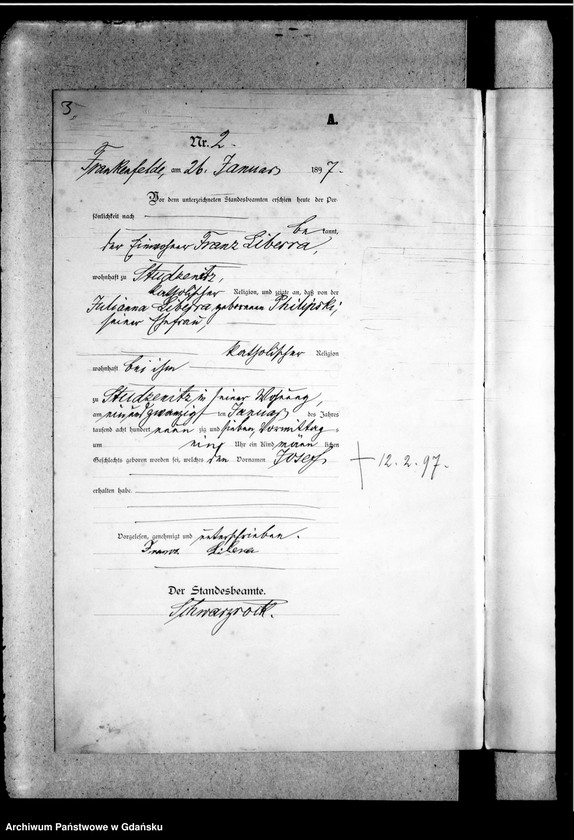 3,
A.
Nr. 2.
Frankenfelde, am 26. Januar 1897.
Vor dem unterzeichneten Standesbeamten erschien heute der Per-
sönlichkeit nach
be kannt,
der Einwohner Franz Liberra,
wohnhaft zu Studzenitz,
katholischer Religion, und zeigte an, daß von der
Julianna Liberra geborenen Philipski,
seiner Ehefrau,
katholischer Religion
wohnhaft bei ihm
zu Studzenitz in seiner Wohnung,
am einundzwanzigsten Januar des Jahres
tausend acht hundert neun zig und sieben, Vormittag s
um Uhr ein Kind männ lichen
Geschlechts geboren worden sei, welches den Vornamen Josef
† 12.2.97.
erhalten habe.
Vorgelesen, genehmigt und unterschrieben.
Franz Libera
Der Standesbeamte.
Schwarzrock.
Archiwum Państwowe w Gdańsku